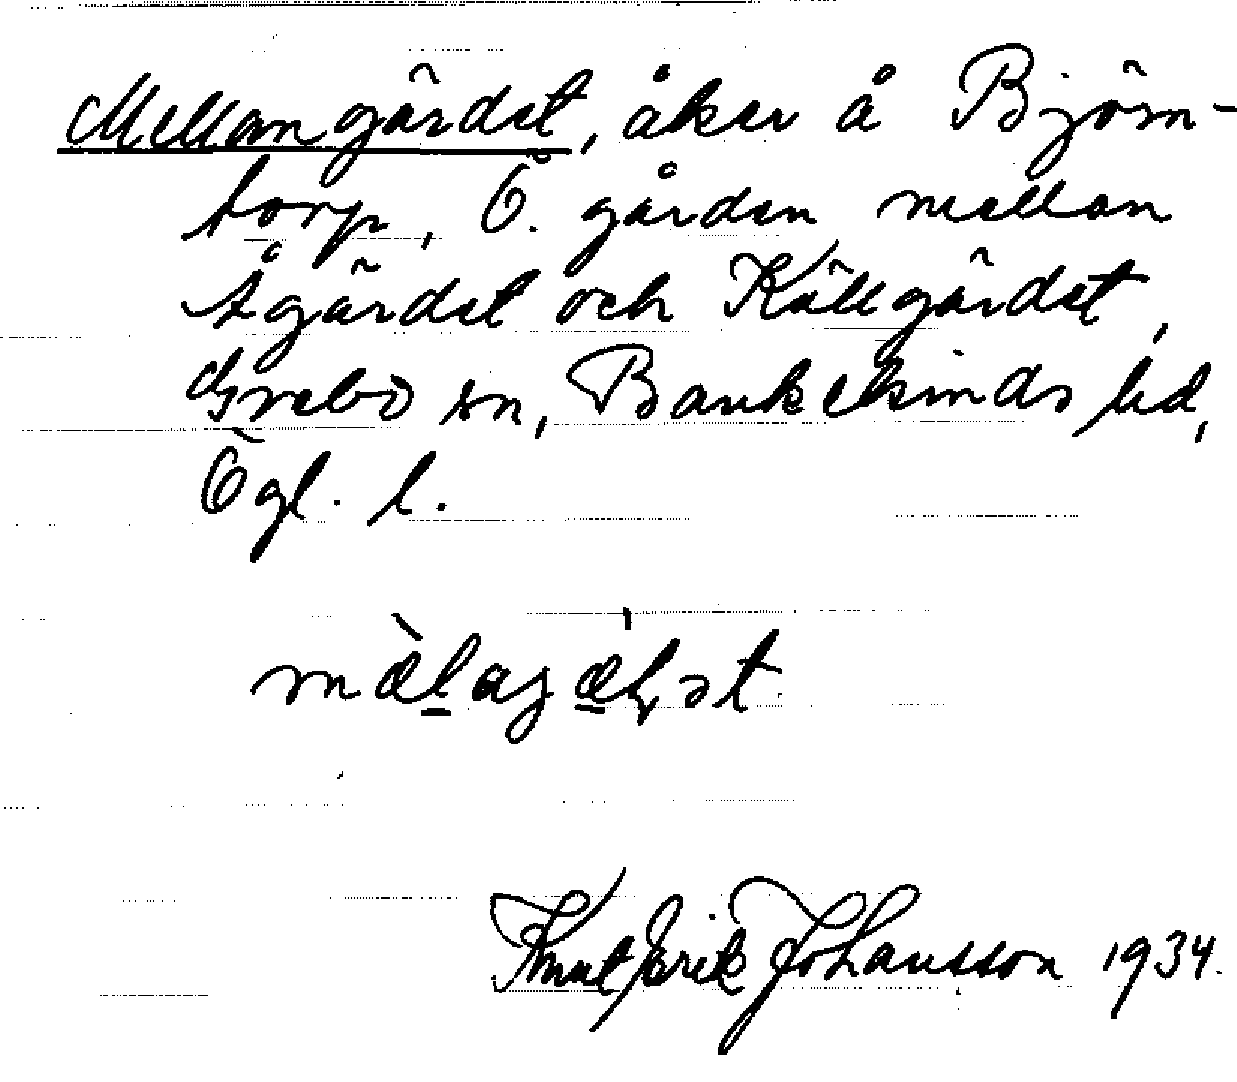 Mellangärdet, åker å Björn-
torp, Ö. gården mellan
Ågärdet och Källgärdet,
Grebo sn, Bankekinds hd,
Ögl. l.
Knut Erik Johansson 1934.